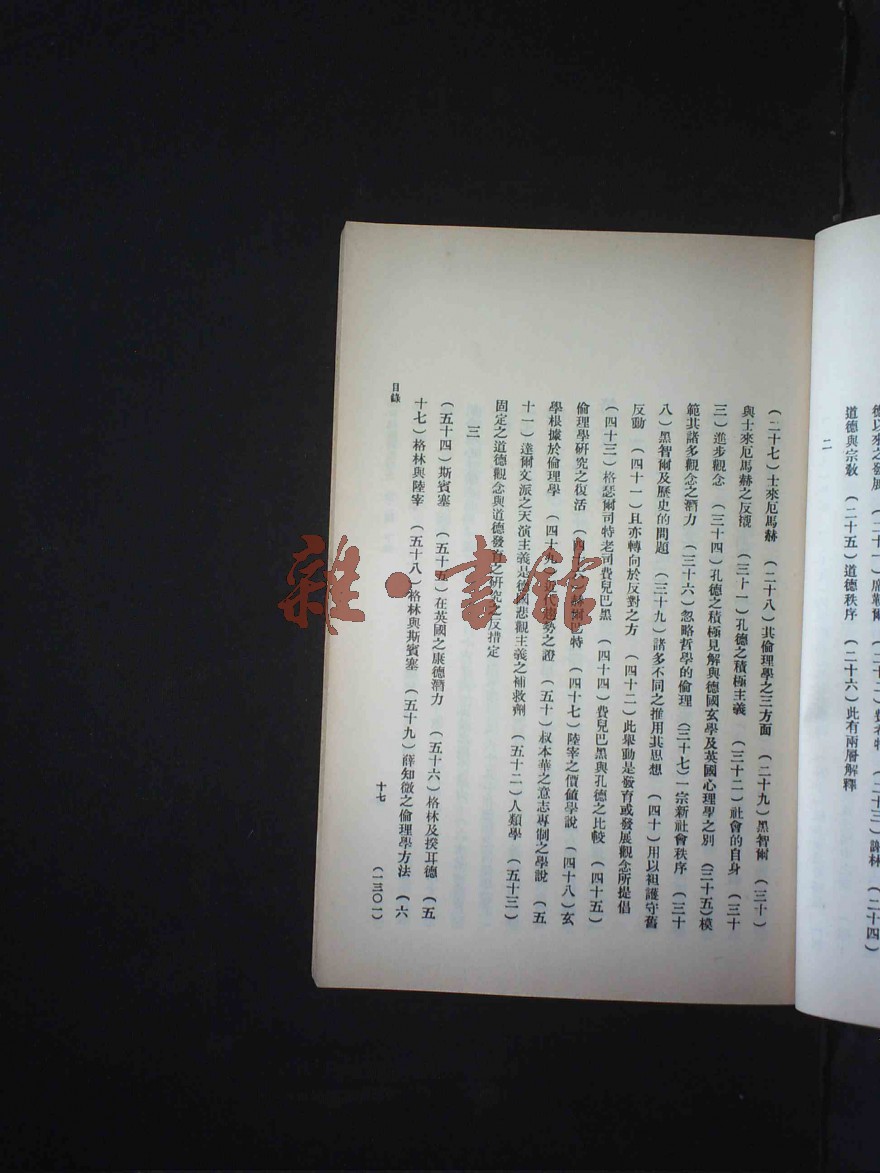 德以來之發展
道德與宗教 （二十五）道德秩序 （二十六）此有兩層解釋
二
（二十七）士來厄馬赫 （二十八）其倫理學之三方面 （二十九）黑智爾 （三十）
與士來厄馬赫之反接 （三十一）孔德之積極主義 （三十二）社會的自身 （三十
三）進步觀念 （三十四）孔德之積極見解與德國玄學及英國心理學之別 （三十五）模
範其諸多觀念之潛力 （三十六）忽略哲學的倫理 （三十七）一宗新社會秩序 （三十
八）黑智爾及歷史的問題 （三十九）諸多不同之推用其思想 （四十）用以袒護守舊
反動 （四十一）且亦轉向於反對之方 （四十二）此舉動是發育或發展觀念所提倡
（四十三）格瑟爾司特老司費兒巴黑 （四十四）費兒巴黑與孔德之比較 （四十五）
倫理學研究之復活 （四十六）赫爾巴特 （四十七）陸宰之價値學說 （四十八）玄
學根據於倫理學 （四十九）近代趨勢之證 （五十）叔本華之意志專制之學說 （五
十一）達爾文派之天演主義是德國悲觀主義之補救劑 （五十二）人類學 （五十三）
固定之道德觀念與道德發育之研究之反措定
三
（五十四）斯賓塞 （五十五）在英國之康德潛力 （五十六）格林及揆耳德 （五
十七）格林與陸宰 （五十八）格林與斯賓塞 （五十九）薛知微之倫理學方法 （六
目錄
十七
（一三〇一）
雜·書館